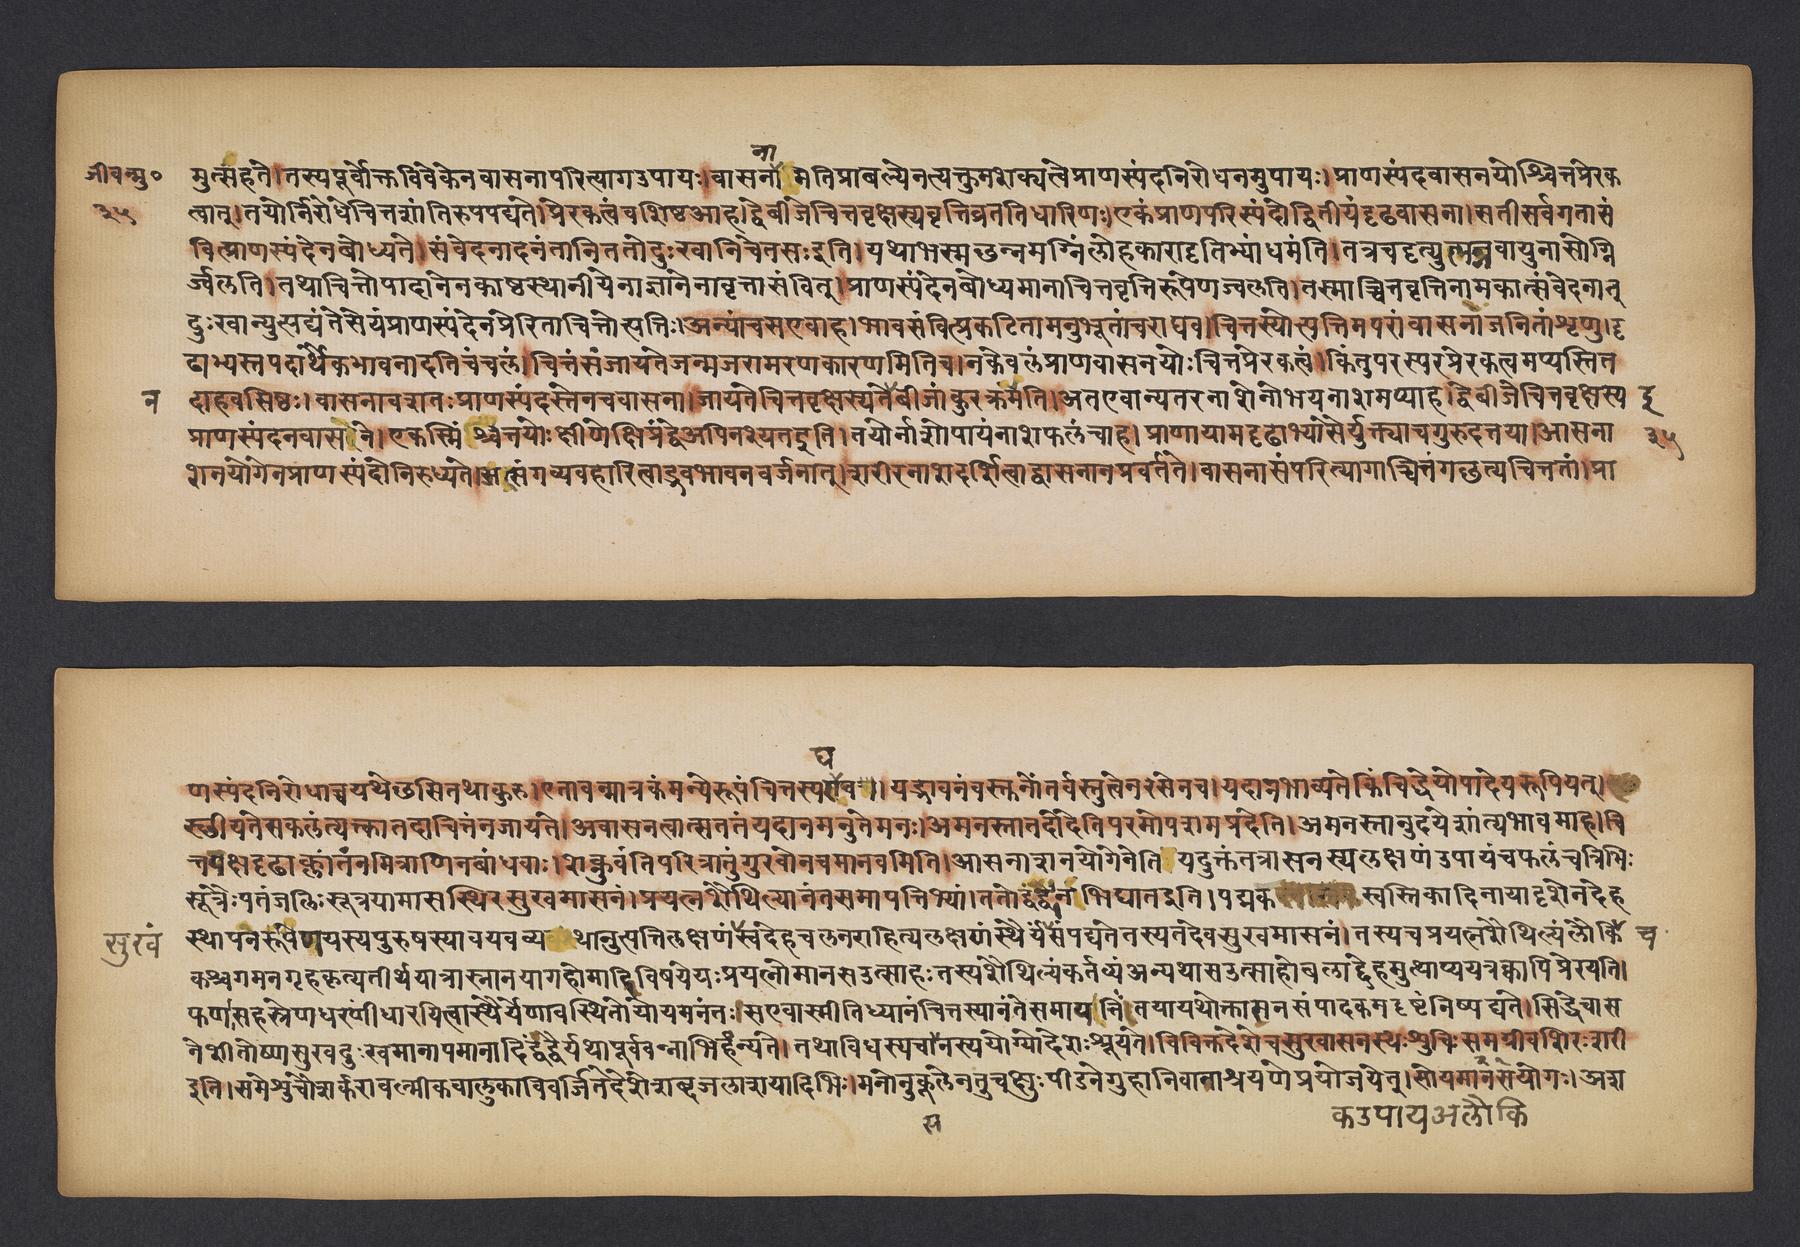 ना
जीवन्मु॰ मुत्सहते।तस्यपूर्वोक्तविवेकेनवासनापरित्यागउपायः।वासनामतिप्राबल्येनत्यक्तुमशक्यत्वेप्राणस्पंदनिरोधनमुपायः।प्राणस्पंदवासनयोश्चित्तप्रेरक
३५ त्वात्।तयोर्निरोधेचित्तशांतिरुपपद्यते।प्रेरकत्वंवशिष्ठआह।द्वेबीजेचित्तवृक्षस्यवृत्तिव्रततिधारिणः।एकंप्राणपरिस्पंदोद्वितीयंदृढवासना।सतीसर्वगतासं
वित्प्राणस्पंदेनबोध्यते।संवेदनादनंतानिततोदुःखानिचेतसःइति।यथाभस्मछन्नमग्निंलोहकारादृतिभ्यांधमंति।तत्रचदृत्युत्पन्नवायुनासोग्नि
र्ज्वलति।तथाचित्तोपादानेनकाष्ठस्थानीयेनाज्ञानेनावृत्तासंवित्।प्राणस्पंदेनबोध्यमानाचित्तवृत्तिरूपेणज्वलति।तस्माच्चित्तवृत्तिनामकात्संवेदनात्
दुःखान्युत्पद्यंतेसेयंप्राणस्पंदेनप्रेरिताचित्तोत्पत्तिः।अन्यांचसएवाह।भावसंवित्प्रकटितामनुभूतांचराघव।चित्तस्योत्पत्तिमपरांवासनाजनितांशृणु।दृ
ढाभ्यस्तपदार्थैकभावनादतिचंचलं।चित्तंसंजायतेजन्मजरामरणकारणमितिच।नकेवलंप्राणवासनयोःचित्तप्रेरकत्वं।किंतुपरस्परप्रेरकत्वमप्यस्तित
न दाहवसिष्ठः।वासनावशतःप्राणस्पंदस्तेनचवासना।जायतेचित्तवृक्षस्यतेबीजांकुरक्रमेति।अतएवान्यतरनाशेनोभयनाशमप्याह।द्वेबीजेचित्तवृक्षस्य इ
प्राणस्पंदनवासने।एकस्मिंश्चतयोःक्षीणेक्षिप्रंद्वेअपिनश्यतइति।तयोर्नाशोपायंनाशफलंचाह।प्राणायामदृढाभ्यासैर्युक्त्याचगुरुदत्तया।आसना ३५
शनयोगेनप्राणस्पंदोनिरुध्यते।असंगव्यवहारित्वाद्भवभावनवर्जनात्।शरीरनाशदर्शित्वाद्वासनानप्रवर्तते।वासनासंपरित्यागाच्चित्तंगछत्यचित्ततां।प्रा
घ
णस्पंदनिरोधाच्चयथेछसितथाकुरु।एतावन्मात्रकंमन्येरूपंचित्तस्यराघव।यद्भावनंवस्तुनोंतर्वस्तुत्वेनरसेनच।यदानभाव्यतेकिंचिद्धेयोपादेयरूपियत्।
स्थीयतेसकलंत्यक्त्कातदाचित्तंनजायते।अवासनत्वात्सततंयदानमनुतेमनः।अमनस्तातदोदेतिपरमोपशमप्रदेति।अमनस्तानुदयेशांत्यभावमाह।चि
त्तयक्षदृढाक्रांतंनमित्राणिनबांधवाः।शक्नुवंतिपरित्रातुंगुरवोनचमानवमिति।आसनाशनयोगेनेतियदुक्तंतत्रासनस्यलक्षणंउपायंचफलंचत्रिभिः
सूत्रैःपतंजलिःसूत्रयामासस्थिरसुखमासनं।प्रयत्नशैथिल्यानंतसमापत्तिभ्यां।ततोद्वंद्वानभिघातइति।पद्मकस्वस्तिकादिनायादृशेनदेह
सुखं स्थापनरूपेणयस्यपुरुषस्यावयवव्यथानुत्पत्तिलक्षणंस्वदेहचलनराहित्यलक्षणंस्थैर्यंसंपद्यतेतस्यतदेवसुखमासनं।तस्यचप्रयत्नशैथिल्यंलौकि च
कश्चगमनगृहकृत्यतीर्थयात्रास्नानयागहोमादिविषयेयःप्रयत्नोमानसउत्साहःतस्यशैथिल्यंकर्तव्यंअन्यथासउत्साहोबलाद्देहमुत्थाप्ययत्रक्वापिप्रेरयति।
फणासहस्रेणधरणींधारयित्वास्थैर्येणावस्थितोयोयमनंतः।सएवास्मीतिध्यानंचित्तस्यानंतेसमापत्तिंतयायथोक्तासनसंपादकमदृष्टंनिष्पद्यते।सिद्धेचास
नेशीतोष्णसुखदुःखमानापमानादिद्वंद्वैर्यथापूर्ववन्नाभिहन्यते।तथाविधस्यचासनस्ययोग्योदेशःश्रूयते।विविक्तदेशेचसुखासनस्थःशुचिःसमग्रीवशिरःशरी
इति।समेशुचौशर्करावल्मीकवालुकाविवर्जितेदेशेशब्दजलाशयादिभिः।मनोनुकूलेनतुचक्षुःपीडनेगुहानिवाताश्रयणेप्रयोजयेत्।सोयमासनयोगः।अश
स कउपायअलौकि